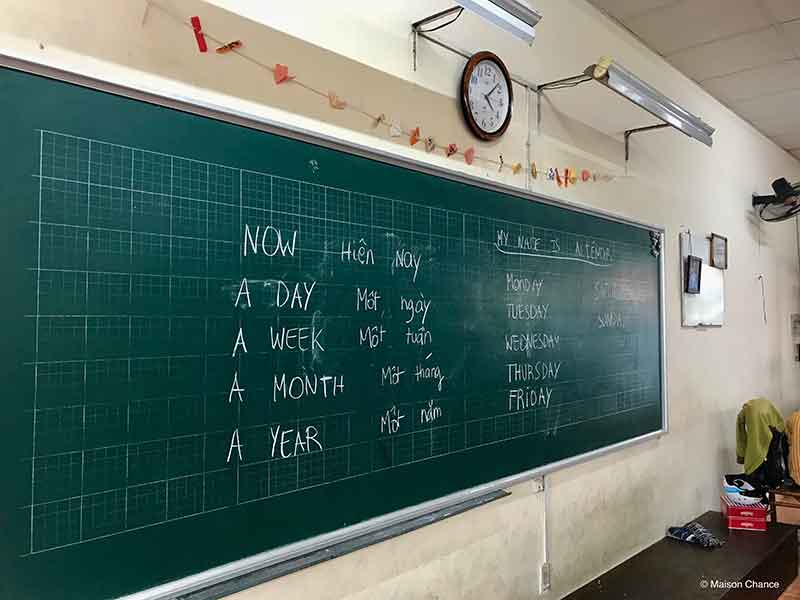 NOW Hiện nay
A DAY Một ngày
A WEEK Một tuần
A MONTH Một tháng
A YEAR Một năm
MY NAME IS
MONDAY
TUESDAY
WEDNESDAY
THURSDAY
FRIDAY
SUNDAY
© Maison Chance